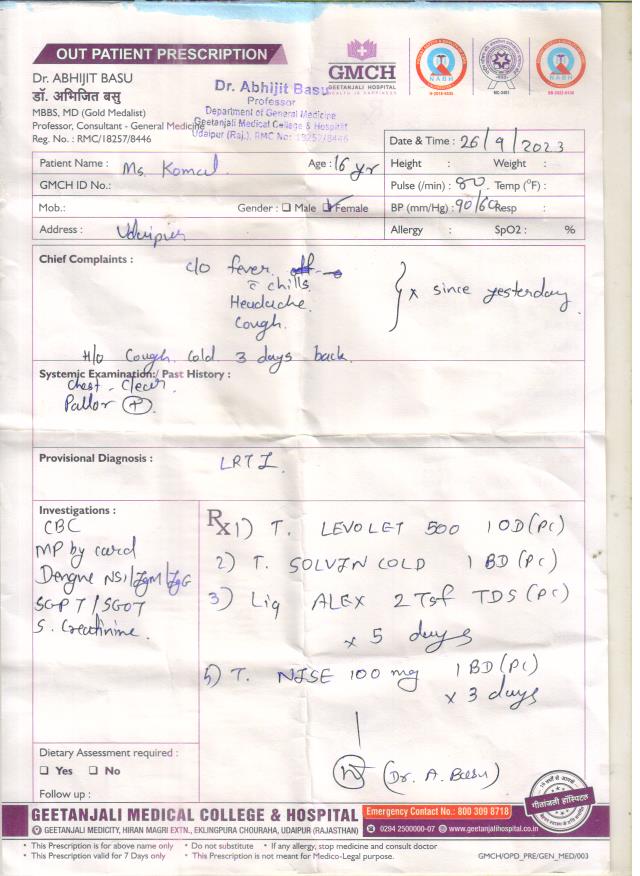 OUT PATIENT PRESCRIPTION
Dr. ABHIJIT BASU
डॉ. अभिजित बसु
MBBS, MD (Gold Medalist)
Professor, Consultant - General Medicine
Reg. No. : RMC/18257/8446
Dr. Abhijit Basu
Professor
Department of General Medicine
Geetanjali Medical College & Hospital
Udaipur (Raj.), RMC No: 18257/8446
GMCH
GEETANJALI HOSPITAL
HEALTH IS HAPPINESS
NABH
NABH
Date & Time : 26/9/2023
Patient Name : Ms. Komal Age : 16 yr
Height : Weight :
GMCH ID No.:
Pulse (/min) : 80 Temp (°F) :
Mob.: Gender : Male Female
BP (mm/Hg) : 90/60 Resp :
Address : Udaipur
Allergy : SpO2 : %
Chief Complaints : c/o fever
c̄ chills
Headache
Cough
x since yesterday
H/o Cough cold 3 days back
Systemic Examination:/ Past History :
Chest - Clear
Pallor +
Provisional Diagnosis : LRTI
Investigations :
CBC
MP by card
Dengue NS1/IgM/IgG
SGPT/SGOT
S. Creatinine
Rx 1) T. LEVOLET 500 1 OD (PC)
2) T. SOLVIN COLD 1 BD (PC)
3) Liq ALEX 2 Tsf TDS (PC)
x 5 days
4) T. NISE 100 mg 1 BD (PC)
x 3 days
(Dr. A. Basu)
Dietary Assessment required :
Yes No
Follow up :
गीतांजली हॉस्पिटल
GEETANJALI MEDICAL COLLEGE & HOSPITAL
Emergency Contact No.: 800 309 8718
GEETANJALI MEDICITY, HIRAN MAGRI EXTN., EKLINGPURA CHOURAHA, UDAIPUR (RAJASTHAN)
0294 2500000-07 www.geetanjalihospital.co.in
• This Prescription is for above name only • Do not substitute • If any allergy, stop medicine and consult doctor
• This Prescription valid for 7 Days only • This Prescription is not meant for Medico-Legal purpose.
GMCH/OPD_PRE/GEN_MED/003